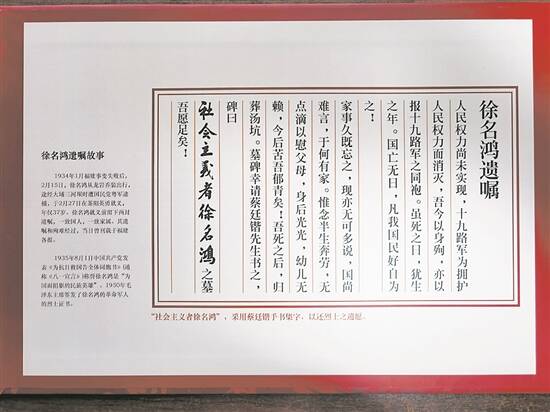 徐名鸿遗嘱
人民权力尚未实现，十九路军为拥护
人民权力面消灭，吾今以身殉，亦以
报十九路军之同袍。虽死之日，犹生
之年。国亡无日，凡我国民好自为
之！
家事久既忘之，现亦无可多说，国尚
难言，于何有家。惟念半生奔劳，无
点滴以慰父母，身后光光，幼儿无
赖，今后苦吾郁青矣！吾死之后，归
葬汤坑。墓碑幸请蔡廷锴先生书之，
碑曰
社会主义者徐名鸿之墓
吾愿足矣！
徐名鸿遗嘱故事
1934年1月福建事变失败后，
2月15日，徐名鸿从龙岩乔装出行，
途经大埔三河坝时遭国民党粤军逮
捕，于2月27日在茶阳英勇就义，
年仅37岁。徐名鸿就义前留下两封
遗嘱，一致国人，一致家属。其遗
嘱和殉难经过，当日曾刊载于福建
各报。
1935年8月1日中国共产党发
表《为抗日救国告全体同胞书》（通
称《八一宣言》）称誉徐名鸿是“为
国而捐躯的民族英雄”。1950年毛
泽东主席签发了徐名鸿的革命军人
的烈士证书。
“社会主义者徐名鸿”，采用蔡廷锴手书集字，以还烈士之遗愿。